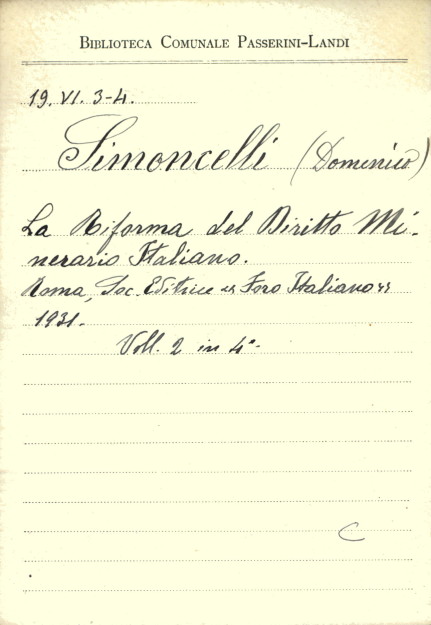 BIBLIOTECA COMUNALE PASSERINI-LANDI
19. VI. 3-4.
Simoncelli (Domenico)
La Riforma del Diritto Mi-
nerario Italiano.
Roma, Soc. Editrice "Foro Italiano"
1931.
Voll. 2 in 4°.
C